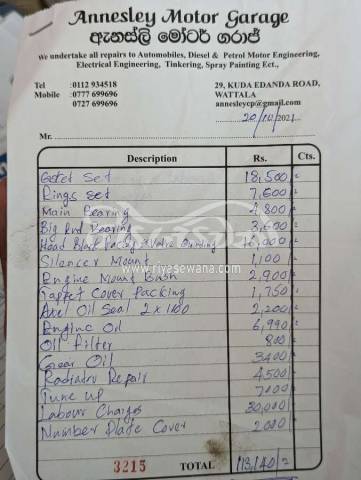 Annesley Motor Garage
ඇනස්ලි මෝටර් ගරාජ්
We undertake all repairs to Automobiles, Diesel & Petrol Motor Engineering,
Electrical Engineering, Tinkering, Spray Painting Ect.,
Tel :0112 934518 29, KUDA EDANDA ROAD,
Mobile :0777 699696 WATTALA
0727 699696 annesleycp@gmail.com
20/10/2021
Mr.
Description Rs. Cts.
Gatet Set 18,500/=
Rings Set 7,600/=
Main Bearing 4,800/=
Big End Bearing 3,600/=
Head Block Packing &Valve Grinding ,000/=
Silencer Mount 1,100/=
Engine Mount Bush 2,900/=
Tappet Cover Packing 1,750/=
Axel Oil Seal 2 x 1100 2,200/=
Engine Oil 6,990/=
Oil Filter 800/=
Gear Oil 3400/=
Radiator Repair 4500/=
Tune up 7000/=
Labour Charges 30,000/=
Number Plate Cover 2000/=
3215 TOTAL 113,140/=
www.riyasewana.com